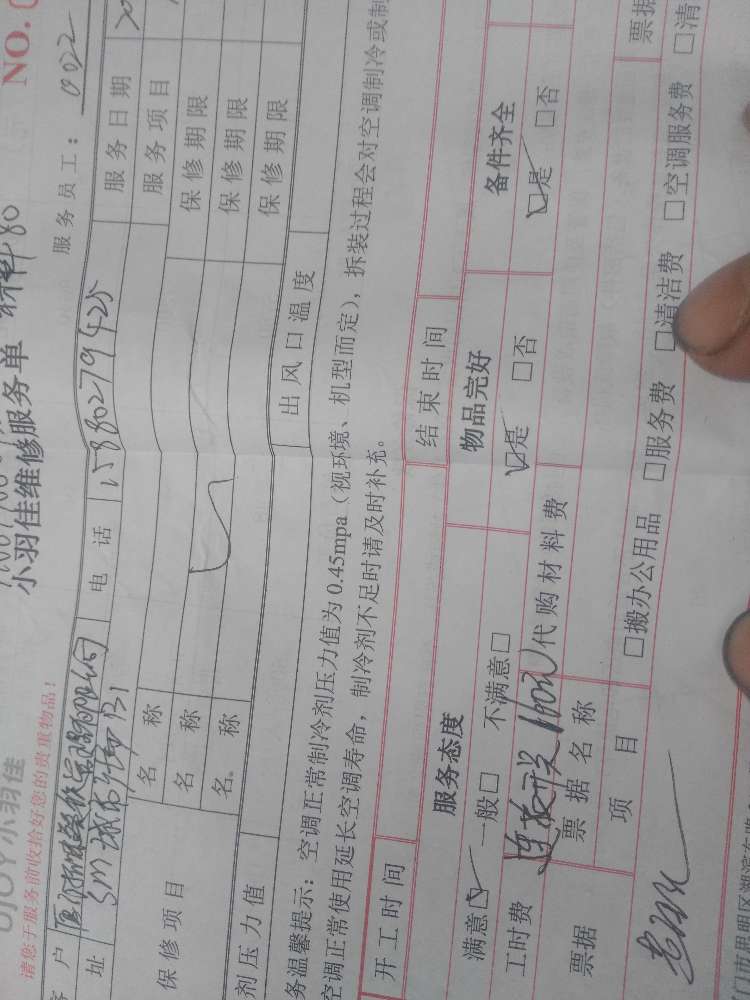 UJOY小羽佳
请您于服务前收拾好您的贵重物品！
小羽佳维修服务单 NO.
服务员工： 0022
客户
服务日期
址 SM B1 电话 15880279425 服务项目
保修项目 名称 保修期限
名称 保修期限
名称 保修期限
剂压力值 出风口温度
务温馨提示：空调正常制冷剂压力值为0.45mpa（视环境、机型而定），拆装过程会对空调制冷或制
空调正常使用延长空调寿命，制冷剂不足时请及时补充。
开工时间 结束时间
服务态度 物品完好 备件齐全
满意☑ 一般□ 不满意□ ☑是 □否 ☑是 □否
工时费 代购材料费
票据 票据名称 票据
项目 □搬办公用品 □服务费 □清洁费 □空调服务费 □清
门市思明区湖滨东路